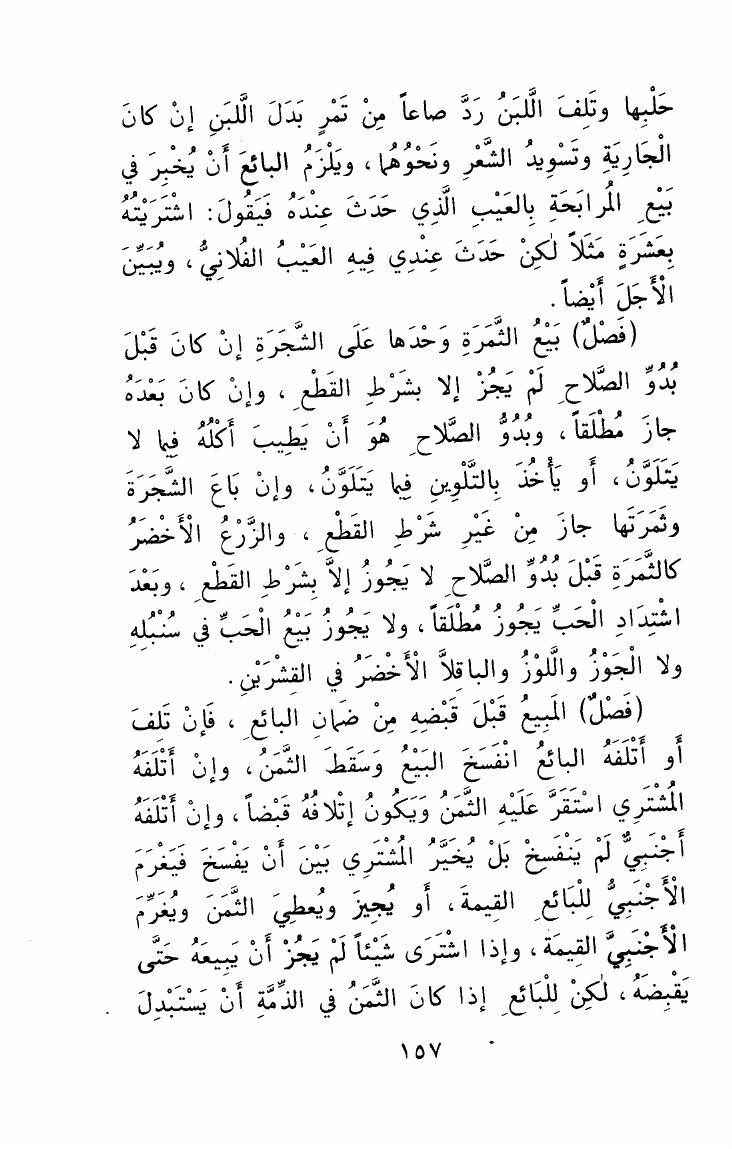 حَلْبِها وتَلِفَ اللَّبَنُ رَدَّ صاعاً مِنْ تَمْرٍ بَدَلَ اللَّبَنِ إنْ كانَ
الْجَارِيَةِ وتَسْوِيدُ الشَّعْرِ ونَحْوُهُما ، ويَلْزَمُ البائعَ أَنْ يُخْبِرَ في
بَيْعِ المُرابَحَةِ بِالعَيْبِ الَّذِي حَدَثَ عِنْدَهُ فَيَقُولَ : اشْتَرَيْتُهُ
بِعَشَرَةٍ مَثَلاً لٰكِنْ حَدَثَ عِنْدِي فِيهِ العَيْبُ الفُلانِيُّ ، ويُبَيِّنَ
الْأَجَلَ أَيْضاً .
(فَصْلٌ) بَيْعُ الثَّمَرَةِ وَحْدَها عَلَى الشَّجَرَةِ إنْ كانَ قَبْلَ
بُدُوِّ الصَّلاحِ لَمْ يَجُزْ إلا بشَرْطِ القَطْعِ ، وإنْ كانَ بَعْدَهُ
جازَ مُطْلَقاً ، وبُدُوُّ الصَّلاحِ هُوَ أَنْ يَطِيبَ أَكْلُهُ فِيما لا
يَتَلَوَّنُ ، أو يَأْخُذَ بِالتَّلْوِينِ فِيما يَتَلَوَّنُ ، وإنْ بَاعَ الشَّجَرَةَ
وثَمَرَتَها جازَ مِنْ غَيْرِ شَرْطِ القَطْعِ ، والزَّرْعُ الْأَخْضَرُ
كالثَّمَرَةِ قَبْلَ بُدُوِّ الصَّلاحِ لا يَجُوزُ إلاَّ بِشَرْطِ القَطْعِ ، وبَعْدَ
اشْتِدَادِ الْحَبِّ يَجُوزُ مُطْلَقاً ، ولا يَجُوزُ بَيْعُ الْحَبِّ في سُنْبُلِهِ
ولا الْجَوْزُ واللَّوْزُ والباقلاَّ الْأَخْضَرُ في القِشْرَيْنِ .
(فَصْلٌ) المَبِيعُ قَبْلَ قَبْضِهِ مِنْ ضَمانِ البائعِ ، فَإنْ تَلِفَ
أو أَتْلَفَهُ البائعُ انْفَسَخَ البَيْعُ وَسَقَطَ الثَّمَنُ ، وإنْ أَتْلَفَهُ
المُشْتَرِي اسْتَقَرَّ عَلَيْهِ الثَّمَنُ وَيَكُونُ إتْلافُهُ قَبْضاً ، وإنْ أَتْلَفَهُ
أَجْنَبِيٌّ لَمْ يَنْفَسِخْ بَلْ يُخَيَّرُ المُشْتَرِي بَيْنَ أَنْ يَفْسَخَ فَيَغْرَمَ
الْأَجْنَبِيُّ لِلْبَائعِ القِيمَةَ ، أو يُجِيزَ ويُعطِيَ الثَّمَنَ ويُغَرِّمَ
الأَجْنَبِيَّ القِيمَةَ ، وإذا اشْتَرَى شَيْئاً لَمْ يَجُزْ أَنْ يَبِيعَهُ حَتَّى
يَقْبِضَهُ ، لٰكِنْ لِلْبَائعِ إذا كانَ الثَّمَنُ في الذِّمَّةِ أَنْ يَسْتَبْدِلَ
١٥٧